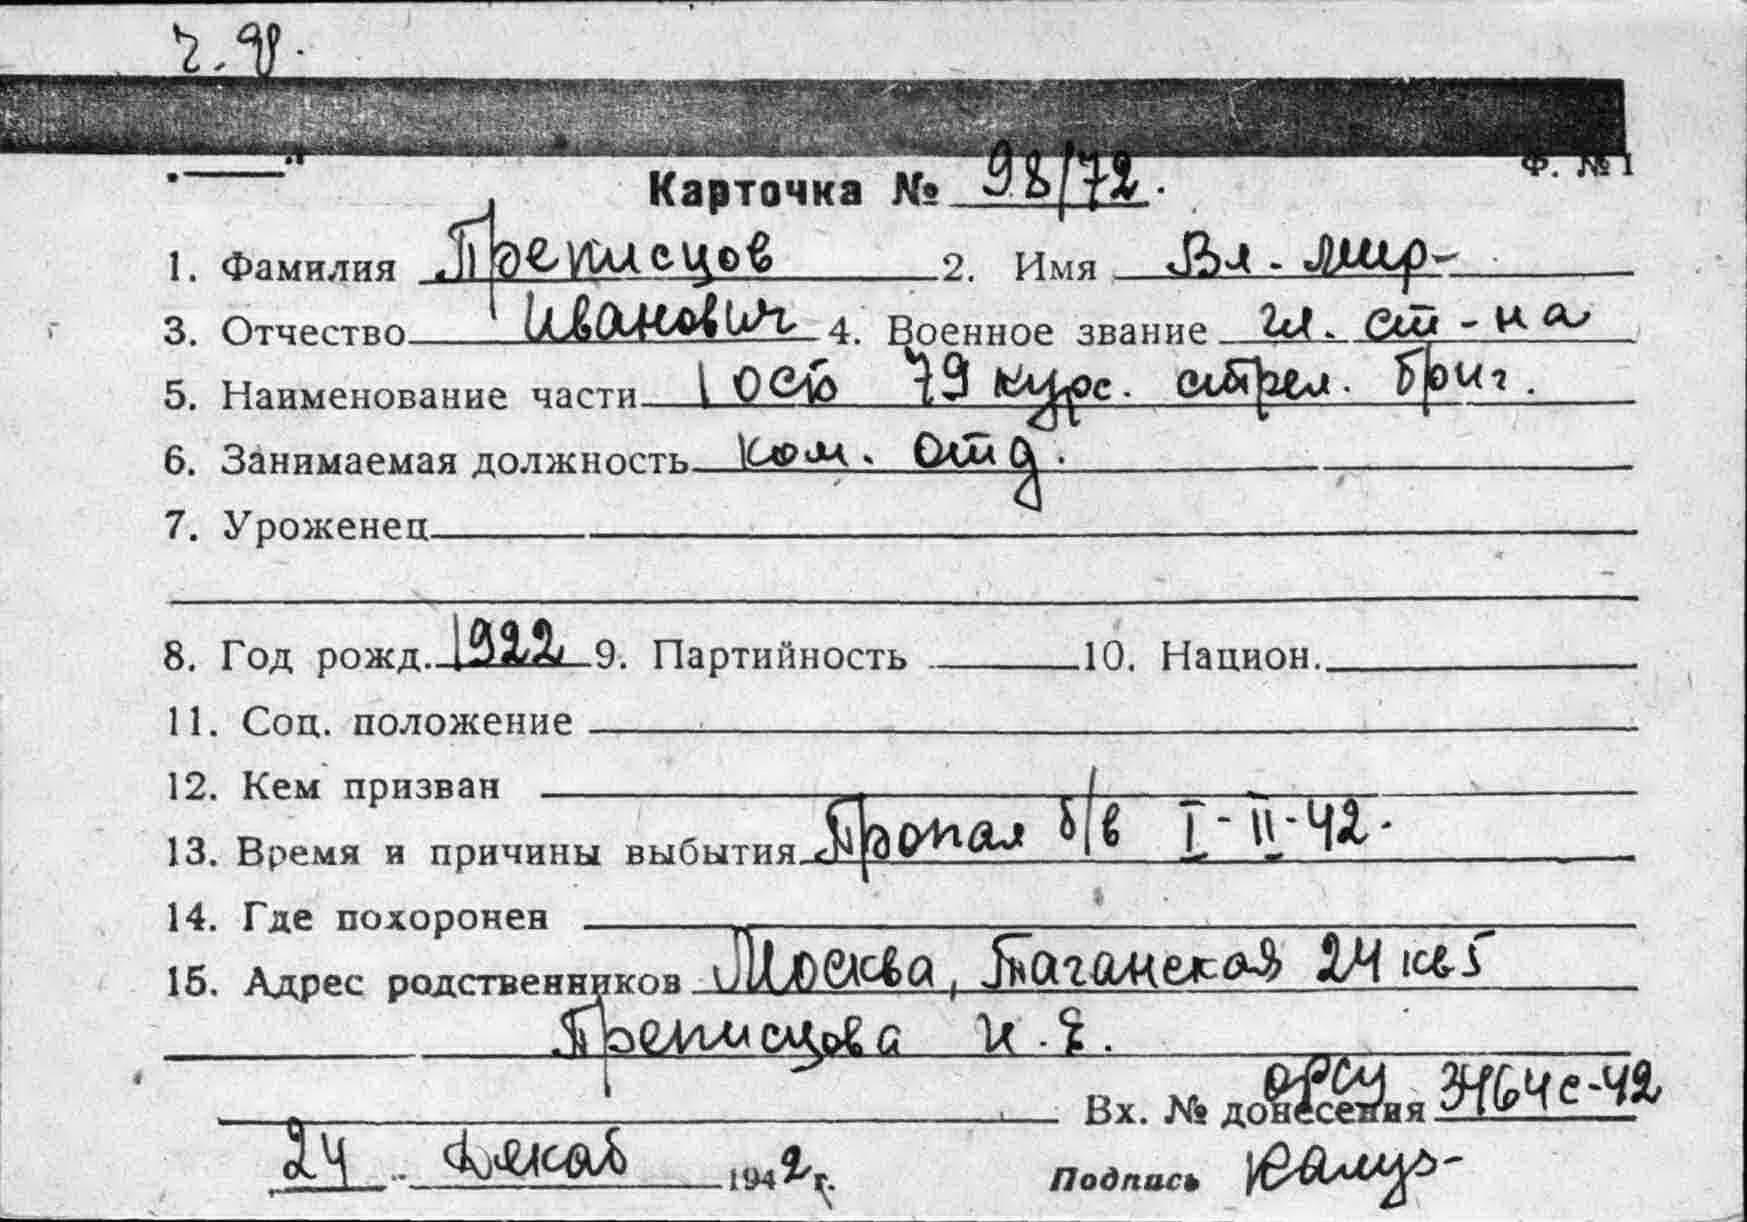 ч. ф.
Ф. № 1
Карточка № 98/72.
1. Фамилия Преписцов 2. Имя Вл-мир-
3. Отчество Иванович 4. Военное звание гл. ст-на
5. Наименование части 1 осб 79 курс. стрел. бриг.
6. Занимаемая должность ком. отд.
7. Уроженец
8. Год рожд. 1922 9. Партийность 10. Национ.
11. Соц. положение
12. Кем призван
13. Время и причины выбытия Пропал б/в I-II-42.
14. Где похоронен
15. Адрес родственников Москва, Таганская 24 кв 5
Преписцова И. Е.
Вх. № донесения 3464с-42
24 Декаб 1942 г. Подпись